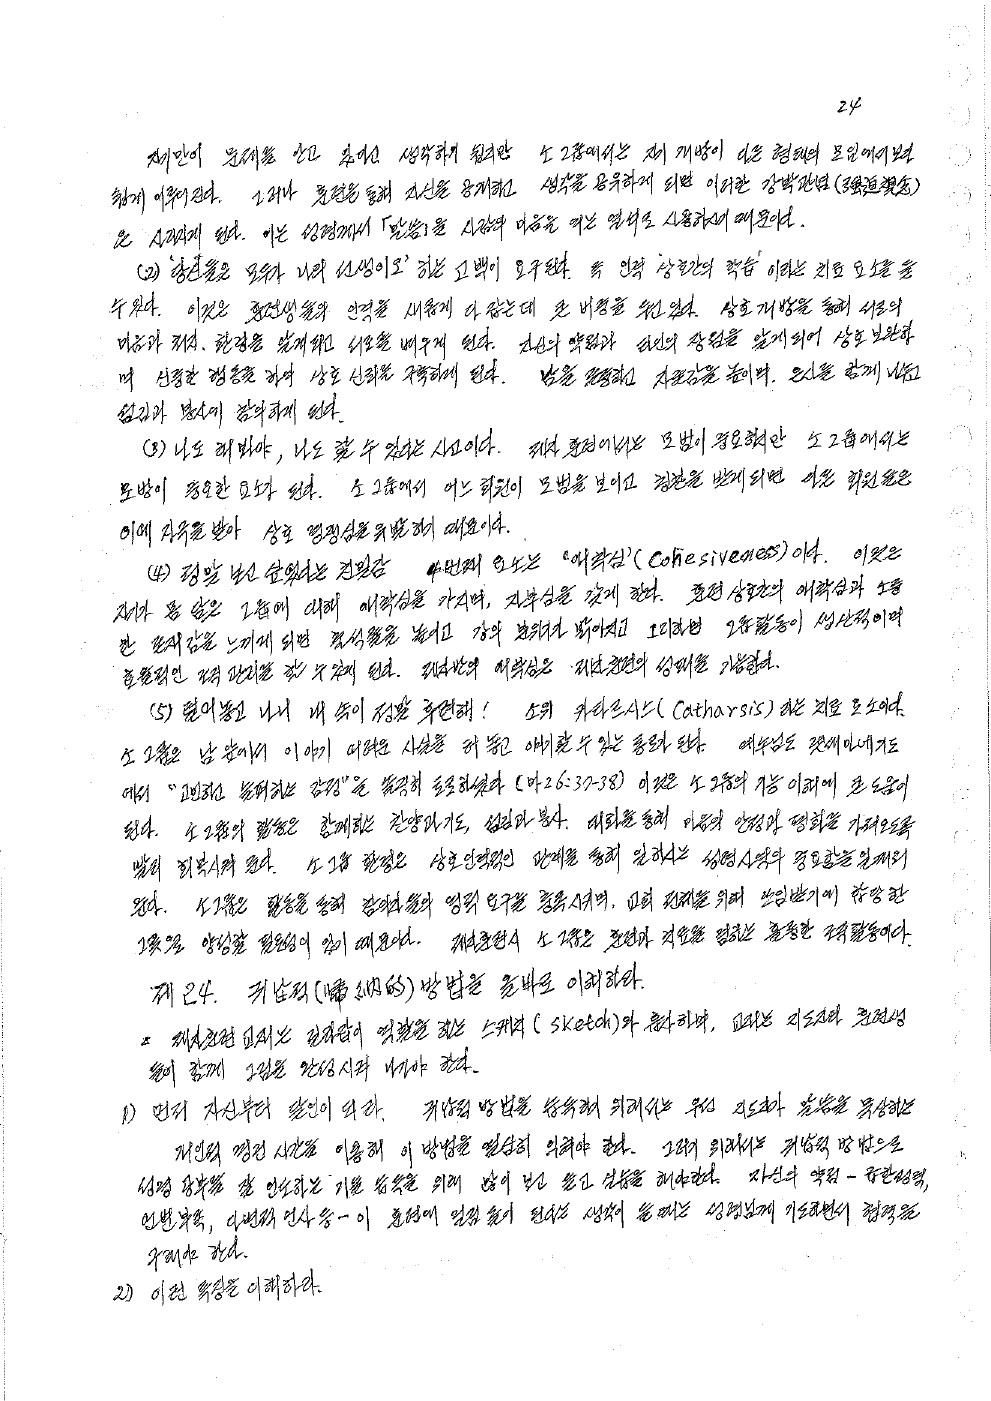 24
자기만이 문제를 안고 있다고 생각하기 쉽지만 소그룹에서는 자기 개방이 다른 형태의 모임에서보다
쉽게 이루어진다. 그러나 훈련을 통해 자신을 공개하고 생각을 공유하게 되면 이러한 강박관념(强迫觀念)
은 사라지게 된다. 이는 성령께서 「말씀」을 사람의 마음을 여는 열쇠로 사용하시기 때문이다.
(2) '당신들은 모두가 나의 선생이오' 하는 고백이 요구된다. 즉 인격 '상호간의 학습' 이라는 치료 요소를 들
수 있다. 이것은 훈련생들의 인격을 새롭게 다듬는데 큰 비중을 두고 있다. 상호 개방을 통해 서로의
마음과 처지, 환경을 알게되고 서로를 배우게 된다. 자신의 약점과 타인의 장점을 알게 되어 상호 보완하
며 신중한 행동을 하여 상호 신뢰를 구축하게 된다. 삶을 나누고 자존감을 높이며, 은사를 함께 나누고
섬김과 봉사에 참여하게 된다.
(3) 나도 해 봐야, 나도 할 수 있다는 사고이다. 제자 훈련에서는 모범이 중요하지만 소그룹에서는
모방이 중요한 요소가 된다. 소그룹에서 어느 회원이 모범을 보이고 칭찬을 받게 되면 다른 회원들은
이에 자극을 받아 상호 경쟁심을 유발하기 때문이다.
(4) 정말 보고 싶었다는 친밀감 4번째 요소는 '애착심' (Cohesiveness)이다. 이것은
자기가 몸 담은 그룹에 대해 애착심을 가지며, 자부심을 갖게 한다. 훈련 상호간의 애착심과 소중
한 존재감을 느끼게 되면 출석률을 높이고 강의 분위기가 밝아지고 그리하면 그룹활동이 생산적이며
효율적인 조직 관리를 할 수 있게 된다. 제자반의 애착심은 제자훈련의 성패를 가늠한다.
(5) 털어놓고 나니 내 속이 정말 후련해! 소위 카타르시스(Catharsis)라는 치료 요소이다.
소그룹은 남 앞에서 이야기 어려운 사실을 터 놓고 얘기할 수 있는 통로가 된다. 예수님도 겟세마네기도
에서 "고민하고 슬퍼하는 감정"을 솔직히 토로하셨다 (마26:37-38) 이것은 소그룹의 기능 이해에 큰 도움이
된다. 소그룹의 활동은 함께하는 찬양과 기도, 섬김과 봉사, 대화를 통해 마음의 안정과 평화를 가져오도록
빨리 회복시켜 준다. 소그룹 환경은 상호인격적인 관계를 통해 일하시는 성령사역의 중요함을 일깨워
준다. 소그룹은 활동을 통해 참여자들의 영적 요구를 충족시키며, 교회 전체를 위해 쓰임받기에 합당한
그릇으로 양성할 필요성이 있기 때문이다. 제자훈련시 소그룹은 훈련과 치료를 겸하는 훌륭한 조직활동이다.
제24. 귀납적(歸納的) 방법을 올바로 이해하라.
* 제자훈련 교재는 길잡이 역할을 하는 스케치(sketch)와 유사하며, 교재는 지도자와 훈련생
들이 함께 그림을 완성시켜 나가야 한다.
1) 먼저 자신부터 달인이 되라. 귀납적 방법을 습득하기 위해서는 우선 지도자가 말씀을 묵상하는
개인적 경건 시간을 이용해 이 방법을 열심히 익혀야 한다. 그러기 위해서는 귀납적 방법으로
성경 공부를 잘 인도하는 기술 습득을 위해 많이 보고 듣고 실습을 해야한다. 자신의 약점 - 급한성격,
언변부족, 다변적 인사 등 - 이 훈련에 걸림돌이 된다는 생각이 들 때는 성령님께 기도하면서 협력을
구해야 한다.
2) 이런 특징을 이해하라.